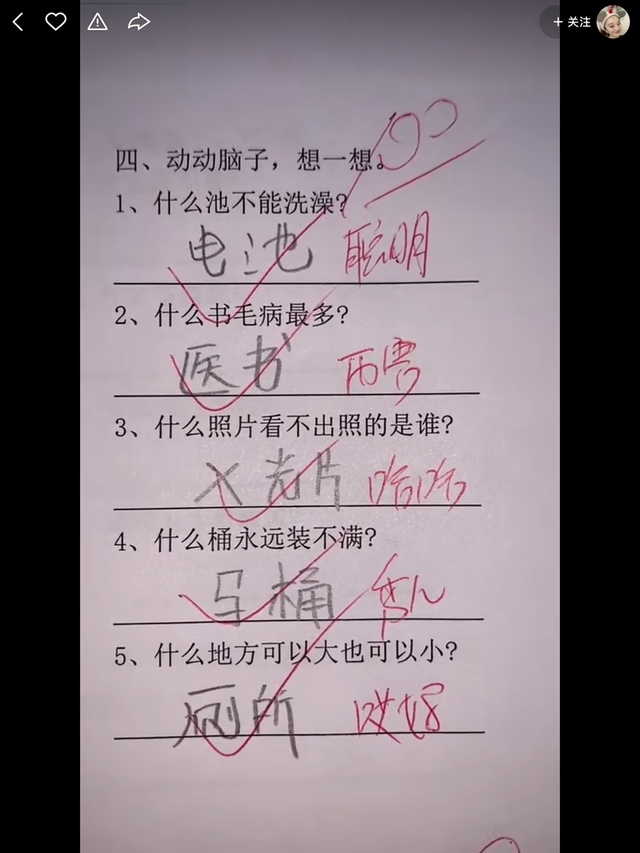 + 关注
四、动动脑子，想一想。
100
1、什么池不能洗澡?
电池 聪明
2、什么书毛病最多?
医书 厉害
3、什么照片看不出照的是谁?
X光片 哈哈
4、什么桶永远装不满?
马桶
5、什么地方可以大也可以小?
厕所 哎妈